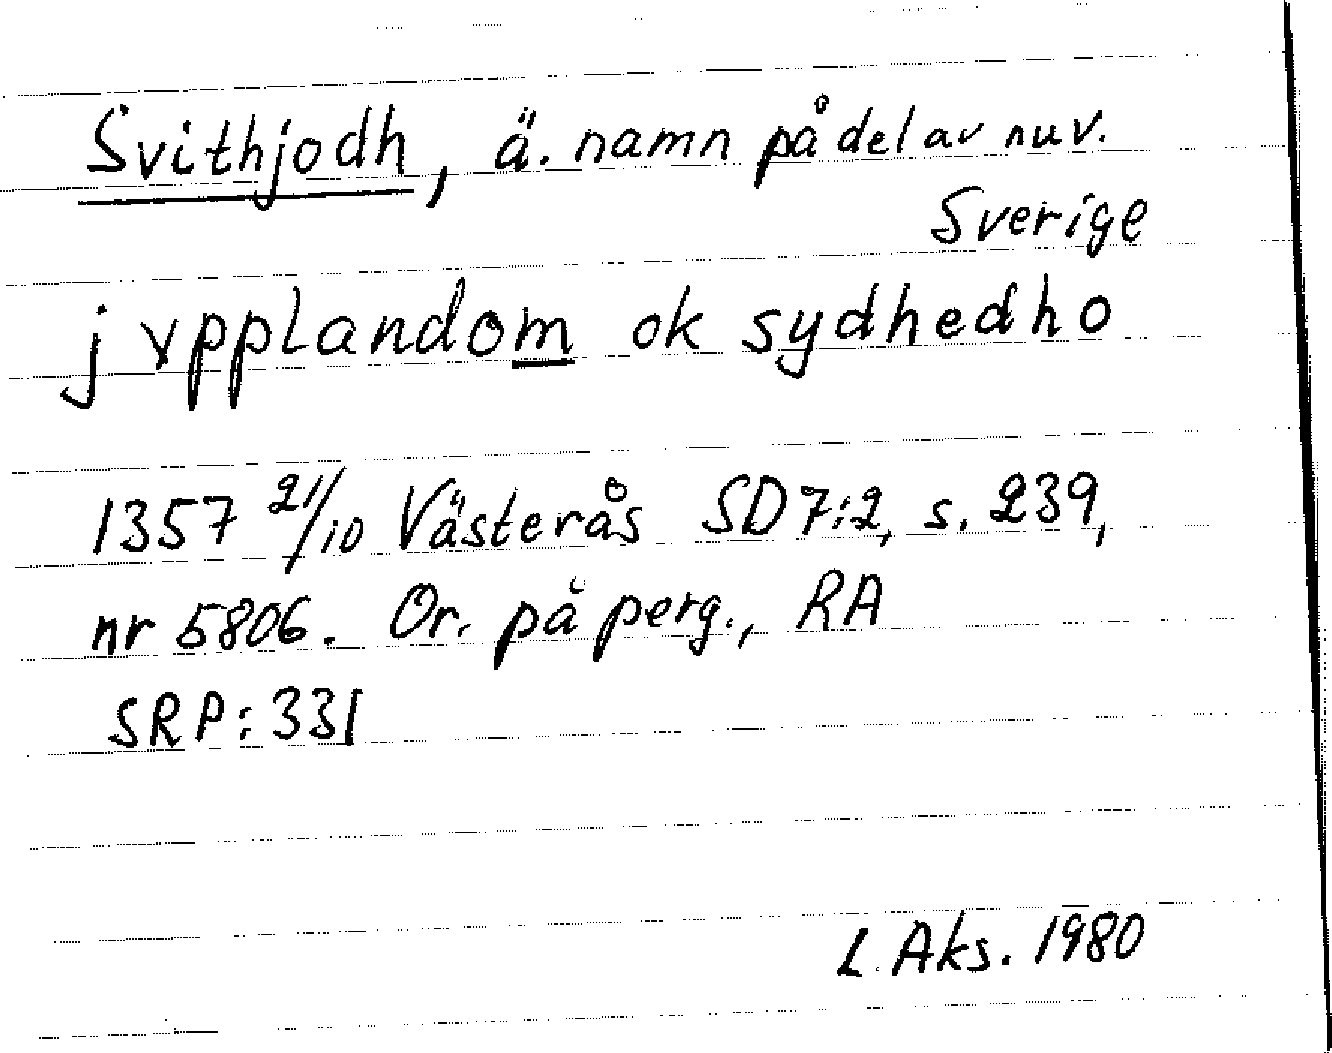 Svithjodh, ä. namn på del av nuv.
Sverige
j vpplandom ok sydhedho
1357 21/10 Västerås SD 7:2, s. 239,
nr 5806. Or. på perg., RA
SRP: 331
L. Aks. 1980